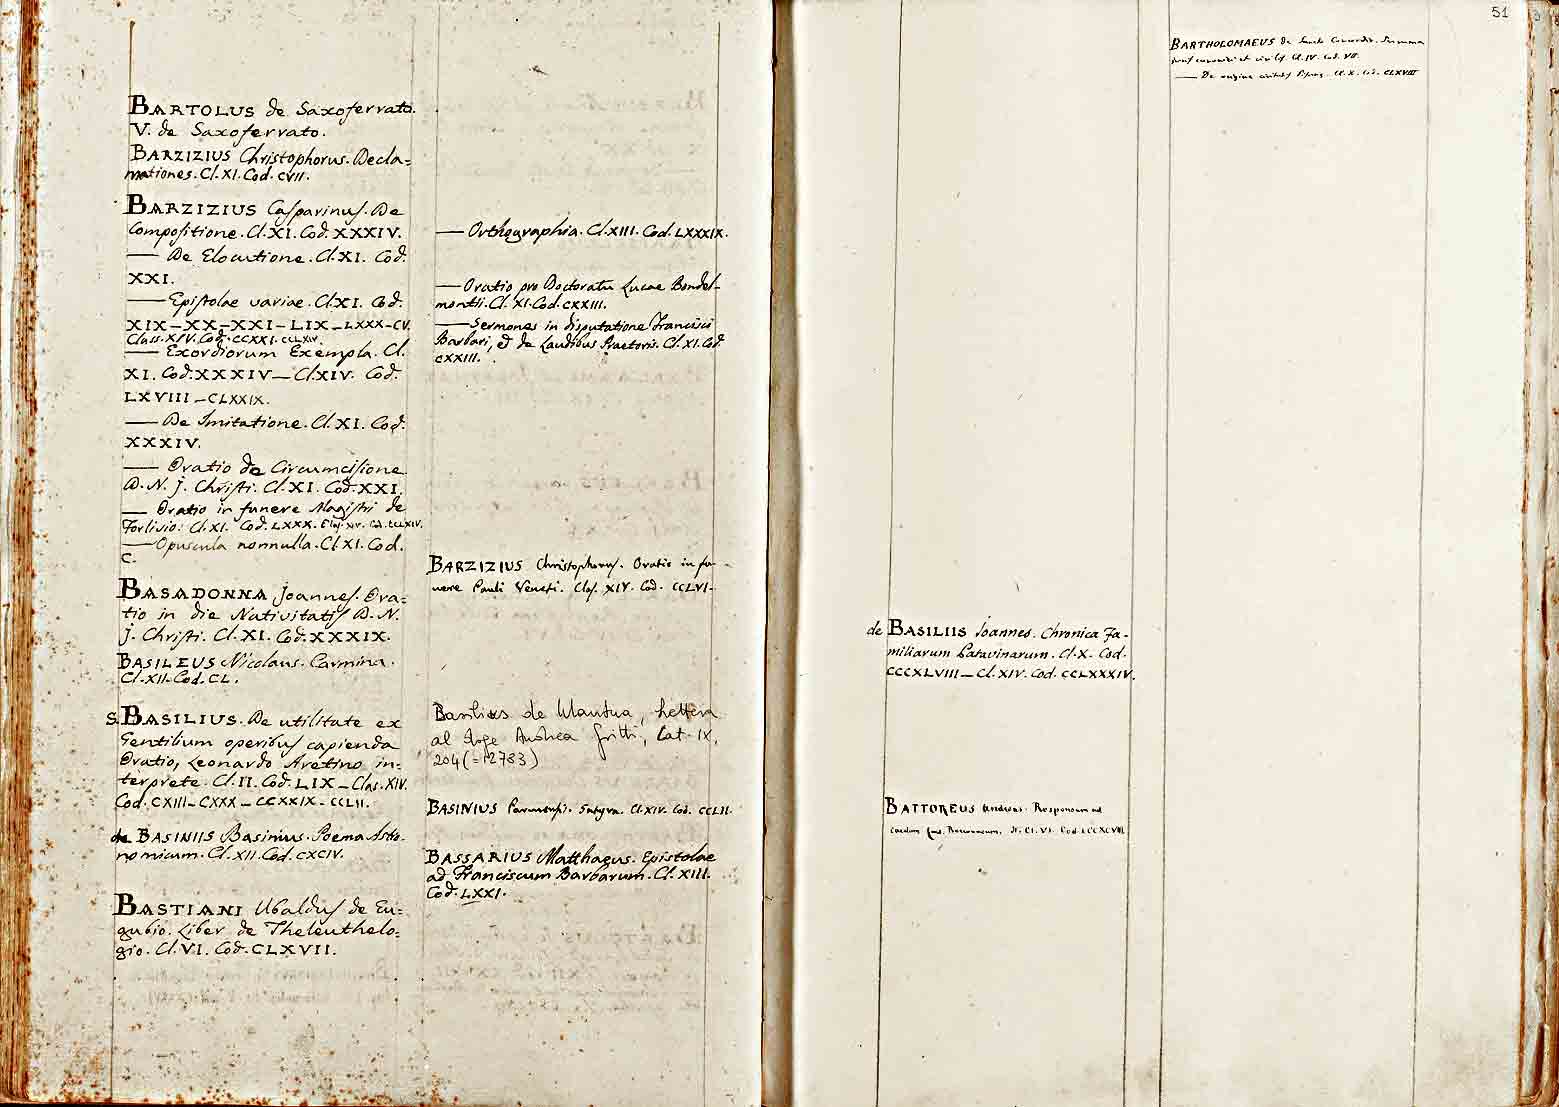 BARTOLUS de Saxoferrato.
V. de Saxoferrato.
BARZIZIUS Christophorus. Decla=
mationes. Cl. XI. Cod. CVII.
BARZIZIUS Casparinus. De
Compositione. Cl. XI. Cod. XXXIV.
— De Elocutione. Cl. XI. Cod.
XXI.
— Epistolae variae. Cl. XI. Cod.
XIX—XX—XXI—LIX—LXXX—CV.
Class. XIV. Cod. CCXXI. CCLXIV.
— Exordiorum Exempla. Cl.
XI. Cod. XXXIV—Cl. XIV. Cod.
LXVIII—CLXXIX.
— De Imitatione. Cl. XI. Cod.
XXXIV.
— Oratio de Circumcisione
D. N. J. Christi. Cl. XI. Cod. XXI.
— Oratio in funere Magistri de
Forlivio. Cl. XI. Cod. LXXX. Clas. XIV. Cod. CCLXIV.
— Opuscula nonnulla. Cl. XI. Cod.
C.
BASADONNA Joannes. Ora=
tio in die Nativitatis D. N.
J. Christi. Cl. XI. Cod. XXXIX.
BASILEUS Nicolaus. Carmina.
Cl. XII. Cod. CL.
S. BASILIUS. De utilitate ex
Gentilium operibus capienda
Oratio, Leonardo Aretino in=
terprete. Cl. II. Cod. LIX—Clas. XIV.
Cod. CXIII—CXXX—CCXXIX—CCLII.
de BASINIIS Basinius. Poema Astro
nomicum. Cl. XII. Cod. CXCIV.
BASTIANI Ubaldus de Eu=
gubio. Liber de Theleuthelo=
gio. Cl. VI. Cod. CLXVII.
— Orthographia. Cl. XIII. Cod. LXXXIX.
— Oratio pro Doctoratu Lucae Bondel-
montii. Cl. XI. Cod. CXXIII.
— Sermones in disputatione Francisci
Barbari, et de Laudibus Praetoris. Cl. XI. Cod.
CXXIII.
BARZIZIUS Christophorus. Oratio in fu-
nere Pauli Veneti. Clas. XIV. Cod. CCLVI.
Basilius de Mantua, lettera
al doge Andrea Gritti, Lat. IX,
204 (=12783)
BASINIUS Parmensis. Satyra. Cl. XIV. Cod. CCLII.
BASSARIUS Matthaeus. Epistolae
ad Franciscum Barbarum. Cl. XIII.
Cod. LXXI.
de BASILIIS Joannes. Chronica Fa-
miliarum Patavinarum. Cl. X. Cod.
CCCXLVIII—Cl. XIV. Cod. CCLXXXIV.
BATTOREUS Andreas. Responsum ad
Cl. VI. Cod.
51
BARTHOLOMAEUS de Sancto Concordio. Summa
juris canonici et civilis. Cl. IV. Cod. VII.
— De origine civitatis Cl. X. Cod. CLXVIII